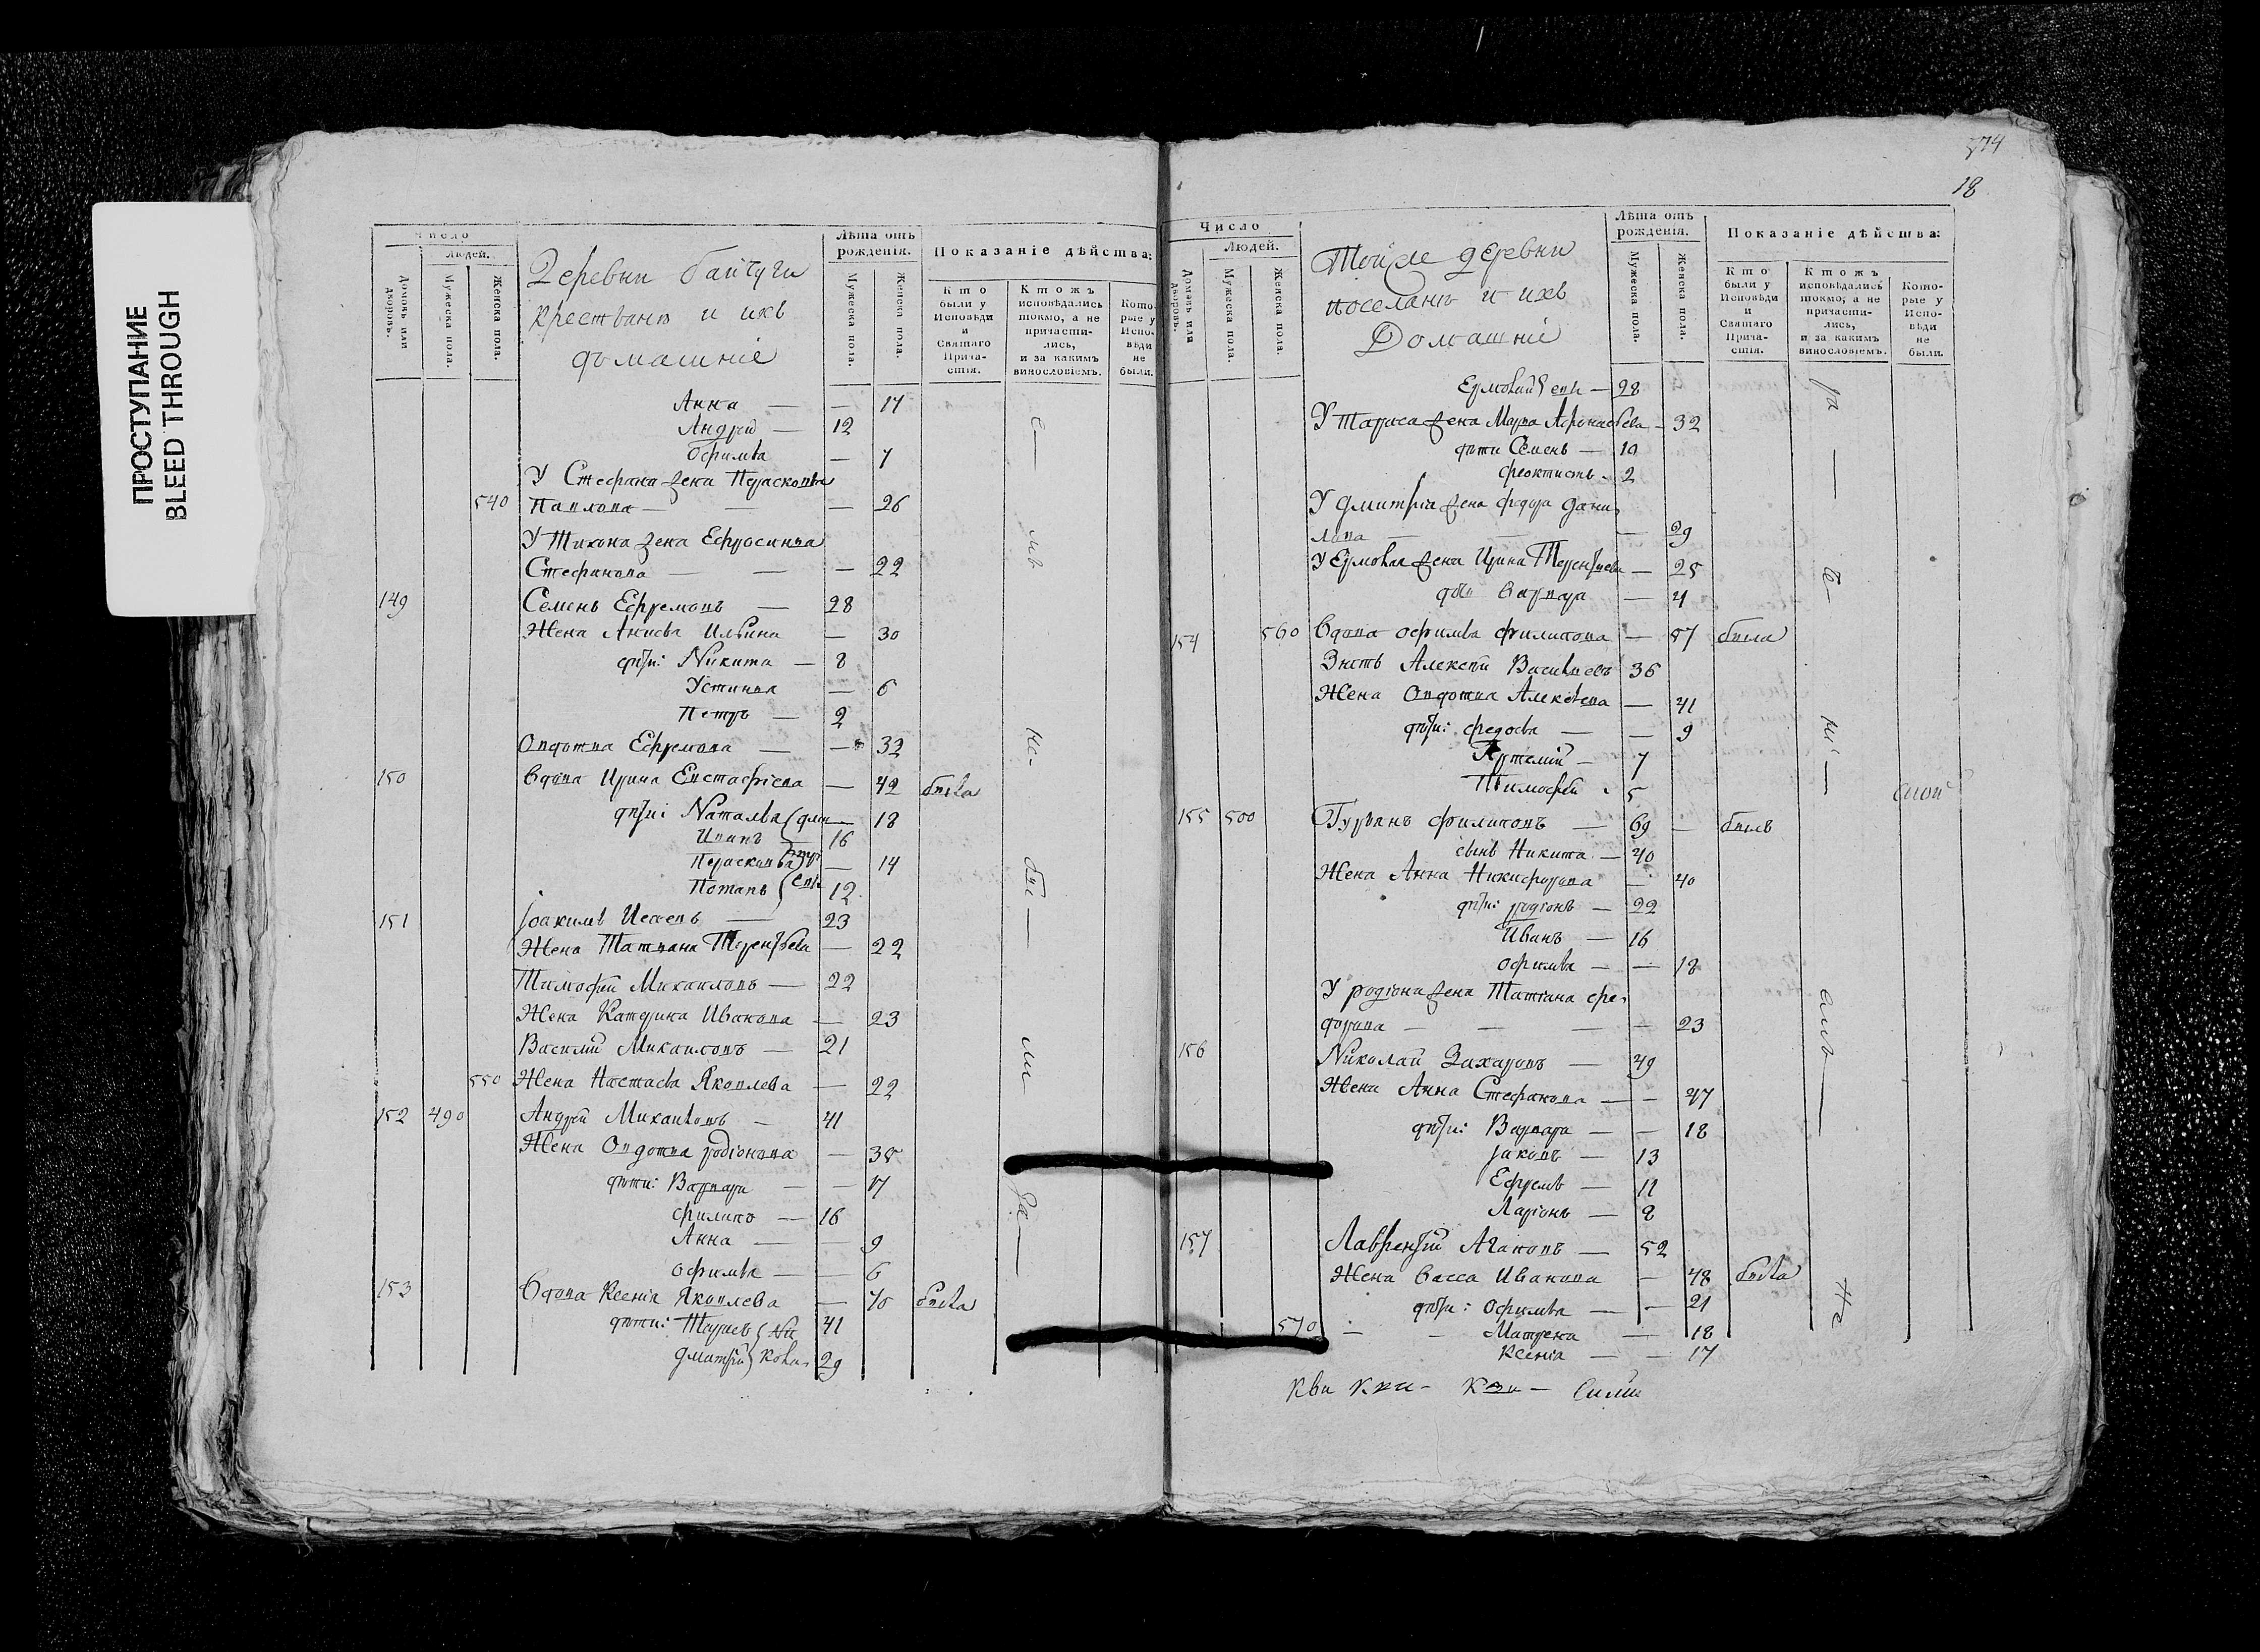 ПРОСТУПАНИЕ
BLEED THROUGH
Число
Людей.
Домовъ или дворовъ.
Мужеска пола.
Женска пола.
Деревни байчуги
крестьянъ и ихъ
домашніе
Лѣта отъ рожденія.
Мужеска пола.
Женска пола.
Показаніе дѣйства:
Кто были у Исповѣди и Святаго Прича-стія.
Ктожъ исповѣдались токмо, а не причасти-лись, и за какимъ винословіемъ.
Кото-рые у Испо-вѣди не были.
Анна — — 17
Андрей — 12
Офимья — 7
У Стефана жена Парасковья
540 Павлова — — — 26
У Тихона жена Ефросинья
Стефанова — — — 22
149 Семенъ Ефремовъ — 28
Жена Анисья Ильина — 30
дѣти: Никита — 8
Устинья — 6
Петръ — 2
Овдотья Ефремова — — 32
150 Вдова Ирина Евстафіева — 42 была
дѣти: Наталья — 18
Иванъ — 16
Парасковья — 14
Потапъ 12
151 Іоакимъ 23
Жена Татьяна Терентьева — 22
Тимофей Михаиловъ — 22
Жена Катерина Иванова — 23
Василий Михаиловъ — 21
550 Жена Настасья Яковлева — 22
152 490 Андрей Михаиловъ — 41
Жена Овдотья родіонова — 38
дѣти: Варвара — — 17
филипъ — 16
Анна — — 9
Офимья — — 6
153 Вдова Ксенія Яковлева — 70 была
дѣти: Тарасъ 41
Дмитрій 29
774
18
Число
Людей.
Домовъ или дворовъ.
Мужеска пола.
Женска пола.
Тойже деревни
поселянъ и ихъ
Домашніе
Лѣта отъ рожденія.
Мужеска пола.
Женска пола.
Показаніе дѣйства:
Кто были у Исповѣди и Святаго Прича-стія.
Ктожъ исповѣдались токмо, а не причасти-лись, и за какимъ винословіемъ.
Кото-рые у Испо-вѣди не были.
Ермолай — 28
У Тараса жена Марья Афонасьева — 32
дѣти Семенъ — 10
феоктистъ — 2
У Дмитрія жена федора Дани
лова — — — 29
У Ермолая жена Ирина Терентиева — 25
дочь Варвара — 4
154 560 Вдова Офимья филипова — 57 была
Зять Алексѣй Васильевъ 36
Жена Овдотья Алексѣева — 41
дѣти: федосья — — 9
Артемій — 7
Тимофей — 5
155 500 Гурьянъ филиповъ — 69 — былъ
сынъ Никита — 40
Жена Анна Никифорова — 40
дѣти: родіонъ — 22
Иванъ — 16
Офимья — — 18
У родіона жена Татіана фе
дорова — — — — 23
156 Николай Захаровъ — 49
Жена Анна Стефанова — — 47
дѣти: Варвара — — 18
Іаковъ — 13
Ефремъ — 11
Ларіонъ — 8
157 Лаврентій Агаповъ — 52
Жена Васса Иванова — 48 была
дѣти: Офимья — — 21
570 — — Матрена — 18
Ксенія — — 17